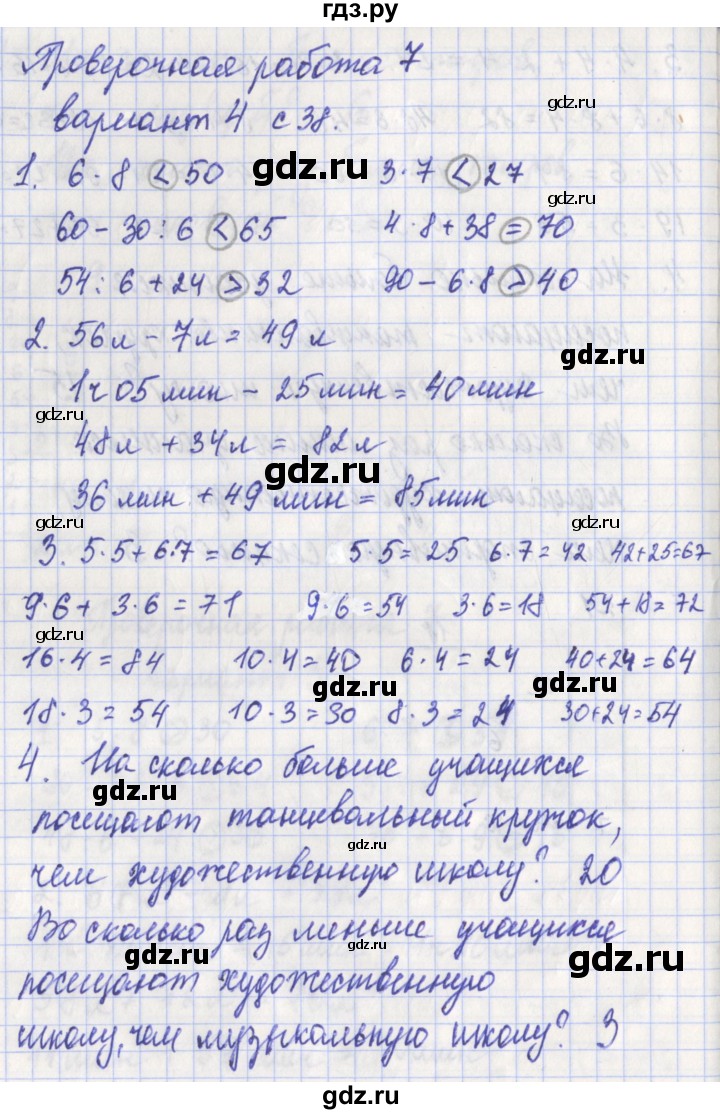 гдз.ру
Проверочная работа 7
вариант 4 с 38.
gdz.ru
gdz.ru
1. 6·8 < 50 3·7 < 27
60 - 30 : 6 < 65 4·8 + 38 = 70
gdz.ru
gdz.ru
54 : 6 + 24 > 32 90 - 6·8 > 40
2. 56л - 7л = 49 л
gdz.ru
1ч 05 мин - 25 мин = 40 мин
gdz.ru
gdz.ru
48л + 34л = 82л
gdz.ru
36 мин + 49 мин = 85 мин
gdz.ru
gdz.ru
3. 5·5 + 6·7 = 67 5·5 = 25 6·7 = 42 42+25=67
9·6 + 3·6 = 71 9·6 = 54 3·6 = 18 54+18=72
gdz.ru
16·4 = 84 10·4 = 40 6·4 = 24 40+24=64
gdz.ru
gdz.ru
18·3 = 54 10·3 = 30 8·3 = 24 30+24=54
gdz.ru
4. На сколько больше учащихся
gdz.ru
посещают танцевальный кружок,
gdz.ru
чем художественную школу? 20
gdz.ru
Во сколько раз меньше учащихся
gdz.ru
gdz.ru
gdz.ru
посещают художественную
gdz.ru
школу, чем музыкальную школу? 3
gdz.ru
gdz.ru
gdz.ru